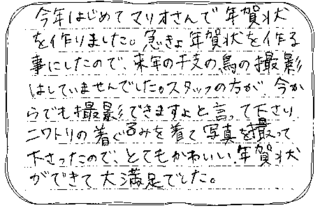 今年はじめてマリオさんで年賀状
を作りました。急きょ年賀状を作る
事にしたので、来年の干支の鳥の撮影
はしていませんでした。スタッフの方が、今か
らでも撮影できますよと言って下さり
ニワトリの着ぐるみを着て写真を撮って
下さったので、とてもかわいい年賀状
ができて大満足でした。